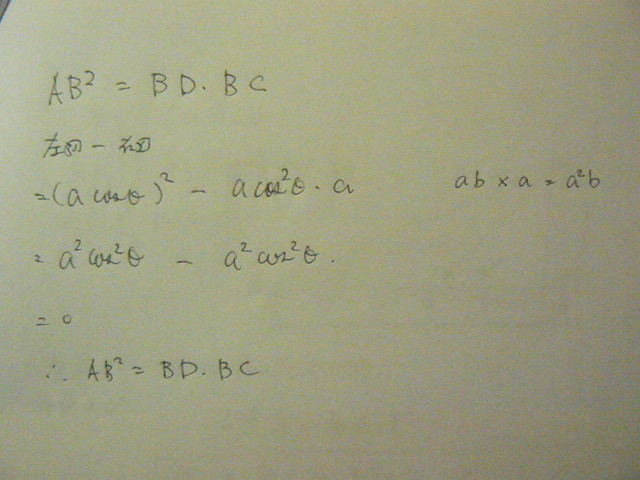 AB² = BD·BC
左辺 − 右辺
= (a cosθ)² − a cos²θ · a
ab × a = a²b
= a² cos²θ − a² cos²θ.
= 0
∴ AB² = BD·BC